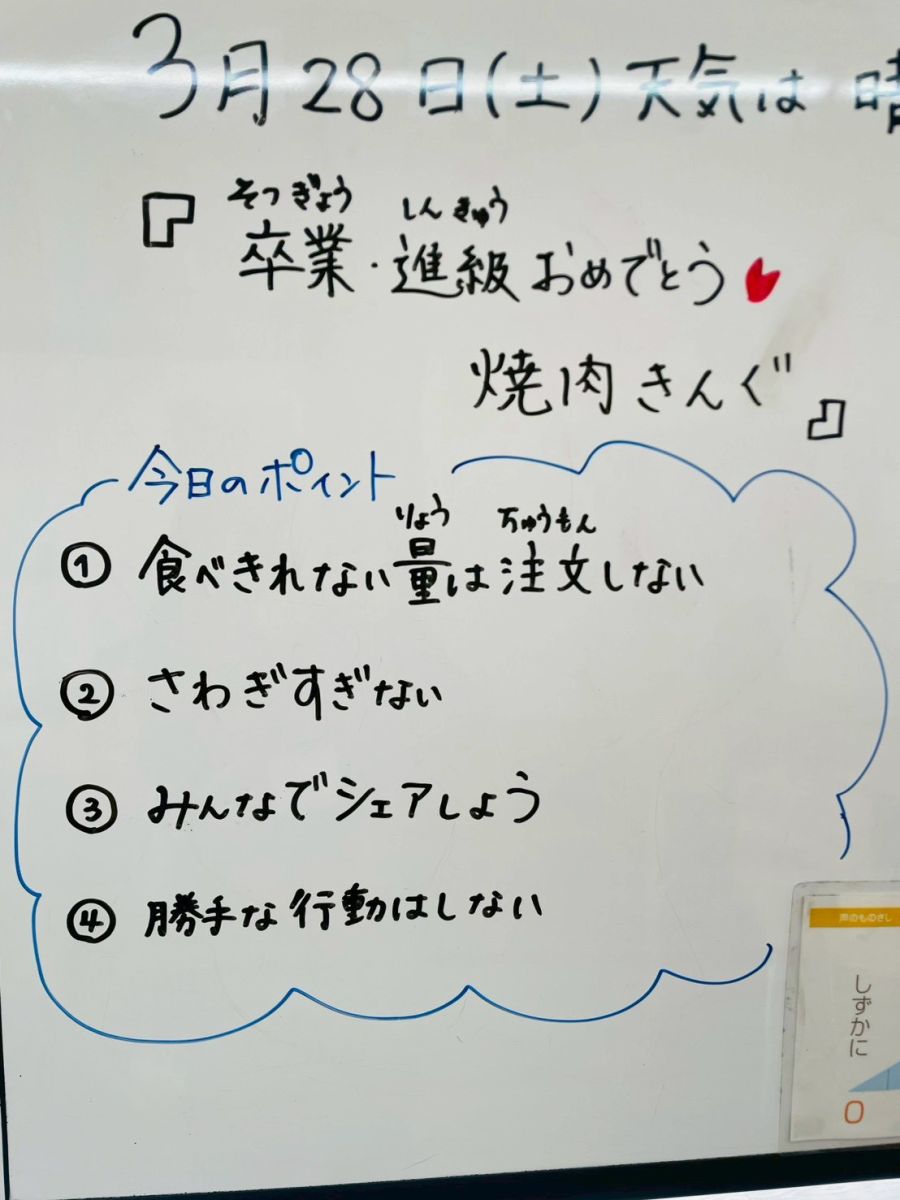 3月28日(土)天気は 晴
『
そつぎょう しんきゅう
卒業・進級おめでとう
焼肉きんぐ
』
今日のポイント
りょう ちゅうもん
① 食べきれない量は注文しない
② さわぎすぎない
③ みんなでシェアしよう
④ 勝手な行動はしない
声のものさし
しずかに
0